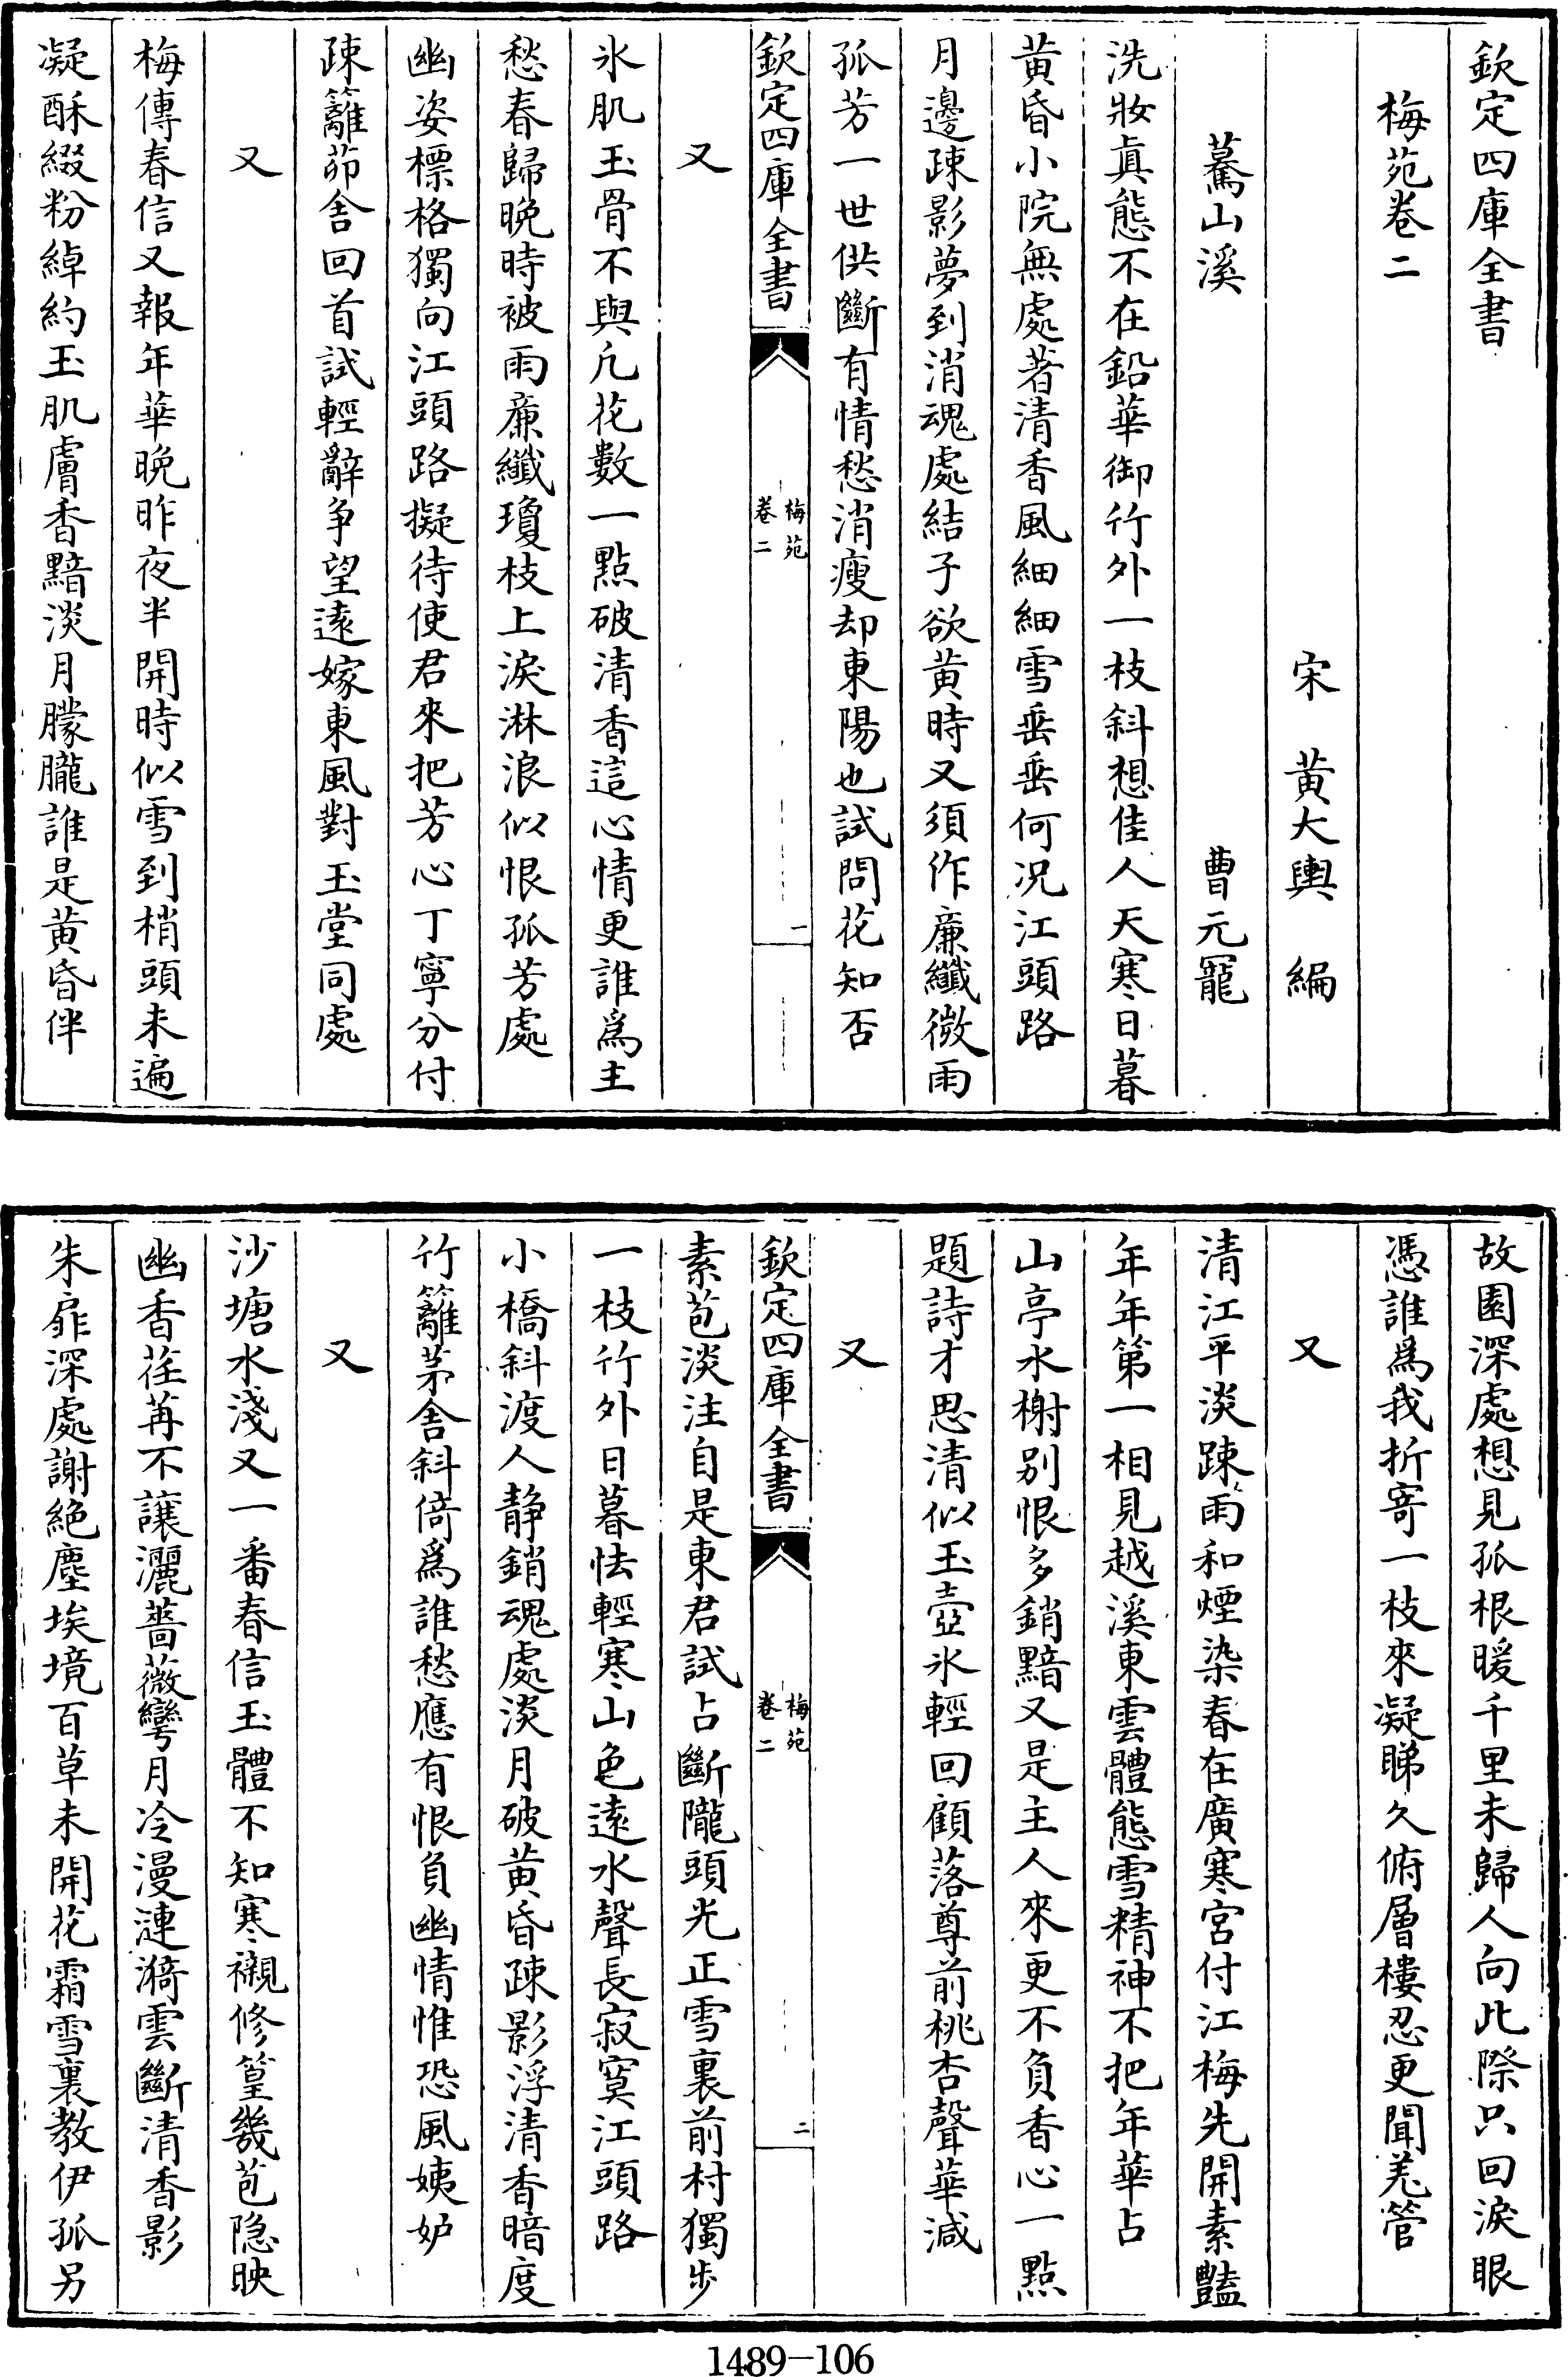 欽定四庫全書
梅苑卷二
宋 黄大輿 編
驀山溪 曹元寵
洗妝真態不在鉛華御竹外一枝斜想佳人天寒日暮
黄昏小院無處著清香風細細雪垂垂何况江頭路
月邊疎影夢到消魂處結子欲黄時又須作亷纖微雨
孤芳一世供斷有情愁消瘦却東陽也試問花知否
欽定四庫全書
梅苑
卷二
一
又
氷肌玉骨不與凡花數一點破清香這心情更誰爲主
愁春歸晚時被雨亷纖瓊枝上淚淋浪似恨孤芳處
幽姿標格獨向江頭路擬待使君來把芳心丁寧分付
疎籬茆舍回首試輕辭争望逺嫁東風對玉堂同處
又
梅傳春信又報年華晚昨夜半開時似雪到梢頭未遍
凝酥綴粉綽約玉肌膚香黯淡月朦朧誰是黄昏伴
故園深處想見孤根暖千里未歸人向此際只回淚眼
憑誰爲我折寄一枝來凝睇久俯層樓忍更聞羌管
又
清江平淡疎雨和煙染春在廣寒宮付江梅先開素豔
年年第一相見越溪東雲體態雪精神不把年華占
山亭水榭别恨多銷黯又是主人來更不負香心一點
題詩才思清似玉壺氷輕回顧落尊前桃杏聲華減
又
欽定四庫全書
梅苑
卷二
二
素苞淡注自是東君試占斷隴頭光正雪裏前村獨步
一枝竹外日暮怯輕寒山色逺水聲長寂寞江頭路
小橋斜渡人静銷魂處淡月破黄昏疎影浮清香暗度
竹籬茅舍斜倚爲誰愁應有恨負幽情惟恐風姨妒
又
沙塘水淺又一番春信玉體不知寒襯修篁幾苞隐映
幽香荏苒不讓灑薔薇彎月冷漫漣漪雲斷清香影
朱扉深處謝絶塵埃境百草未開花霜雪裏教伊孤另
1489-106